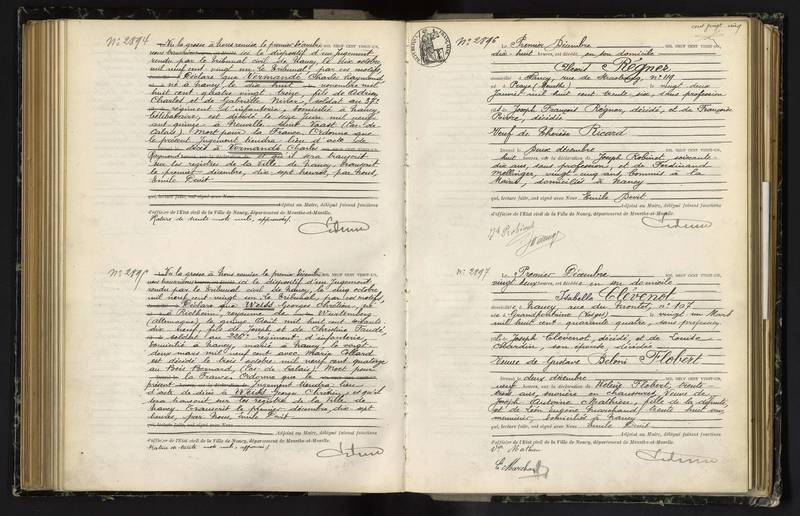 N° 2894
Vu la grosse à nous remise le premier décembre MIL NEUF CENT VINGT-UN,
ici le dispositif d'un jugement
rendu par le tribunal civil de Nancy, le dix octobre
mil neuf cent vingt un le tribunal, par ces motifs
Déclare que Vermande Charles Raymond
né à Nancy, le dix huit novembre mil
huit cent quatre vingt treize, fils de
Charles et de Gabrielle soldat au 37e
régiment d'infanterie, domicilié à Nancy
célibataire, est décédé le seize juin mil neuf
cent quinze à Neuville Saint Vaast (Pas-de-
Calais). Mort pour la France. Ordonne que
le présent jugement tiendra lieu d'acte de
décès à Vermande Charles
Raymond et qu'il sera transcrit
sur les registres de la Ville de Nancy. Transcrit
le premier décembre, dix sept heures, par Nous,
Emile Devit
Adjoint au Maire, délégué faisant fonctions
d'officier de l'Etat civil de la Ville de Nancy, département de Meurthe-et-Moselle.
Rature de trente mots nuls, approuvé.
N° 2895
Vu la grosse à Nous remise le premier décembre MIL NEUF CENT VINGT-UN,
ici le dispositif d'un jugement
rendu par le tribunal civil de Nancy, le cinq octobre
mil neuf cent vingt un le tribunal, par ces motifs,
Déclare que Weibl Georges Chrétien, né
à royaume de Wurtemberg
(Allemagne) le quinze Août mil huit cent soixante
dix neuf, fils de Joseph et de Christine
soldat au 226e régiment d'infanterie,
domicilié à Nancy, marié à Nancy, le vingt
deux mars mil neuf cent avec Marie Collard
est décédé le trois octobre mil neuf cent quatorze
au Bois Bernard, (Pas de Calais). Mort pour
la France. Ordonne que le
présent jugement tiendra lieu
d'acte de décès à Weibl Georges Chrétien, et qu'il
sera transcrit sur les registres de la Ville de
Nancy. Transcrit le premier décembre, dix sept
heures, par Nous Emile Devit
qui, lecture faite, ont signé avec Nous
Adjoint au Maire, délégué faisant fonctions
d'officier de l'Etat civil de la Ville de Nancy, département de Meurthe-et-Moselle.
Rature de trente mots nuls, approuvé
cent vingt cinq
N° 2896
Le Premier Décembre MIL NEUF CENT VINGT-UN,
dix huit heures, est décédé en son domicile
Regner
Nancy, rue de Strasbourg, N° 119
(Moselle) vingt deux
Janvier mil huit cent trente six, sans profession
Joseph François Regner, décédé, et de Françoise
décédée
Veuf de Thérèse Ricard
Dressé le deux décembre MIL NEUF CENT VINGT-UN,
huit heures, sur la déclaration de Joseph Robinet, soixante
dix ans, sans profession, et de Ferdinand
Mellinger, vingt cinq ans commis à la
Mairie, domiciliés à Nancy
qui, lecture faite, ont signé avec Nous Emile Devit
Adjoint au Maire, délégué faisant fonctions
d'officier de l'Etat civil de la Ville de Nancy, département de Meurthe-et-Moselle.
N° 2897
Le Premier Décembre MIL NEUF CENT VINGT-UN,
vingt heures, est décédée en son domicile
Isabelle Clévenot
à Nancy, rue du Montet, N° 107
à Grandfontaine (Vosges) le vingt un Mars
mil huit cent quarante quatre, sans profession
de Joseph Clévenot, décédé, et de Louise
son épouse, décédée
Veuve de Gustave Béloni Flobert
Dressé le deux décembre MIL NEUF CENT VINGT-UN,
neuf heures, sur la déclaration de Hélène Flobert, trente
trois ans, ouvrière en chaussures, Veuve de
Joseph Mathieu, fille de la défunte,
et de Léon Eugène Marchand, trente huit ans
domiciliés à Nancy
qui, lecture faite, ont signé avec Nous Emile Devit
Adjoint au Maire, délégué faisant fonctions
d'officier de l'Etat civil de la Ville de Nancy, département de Meurthe-et-Moselle.
Ve Mathieu
E. Marchand